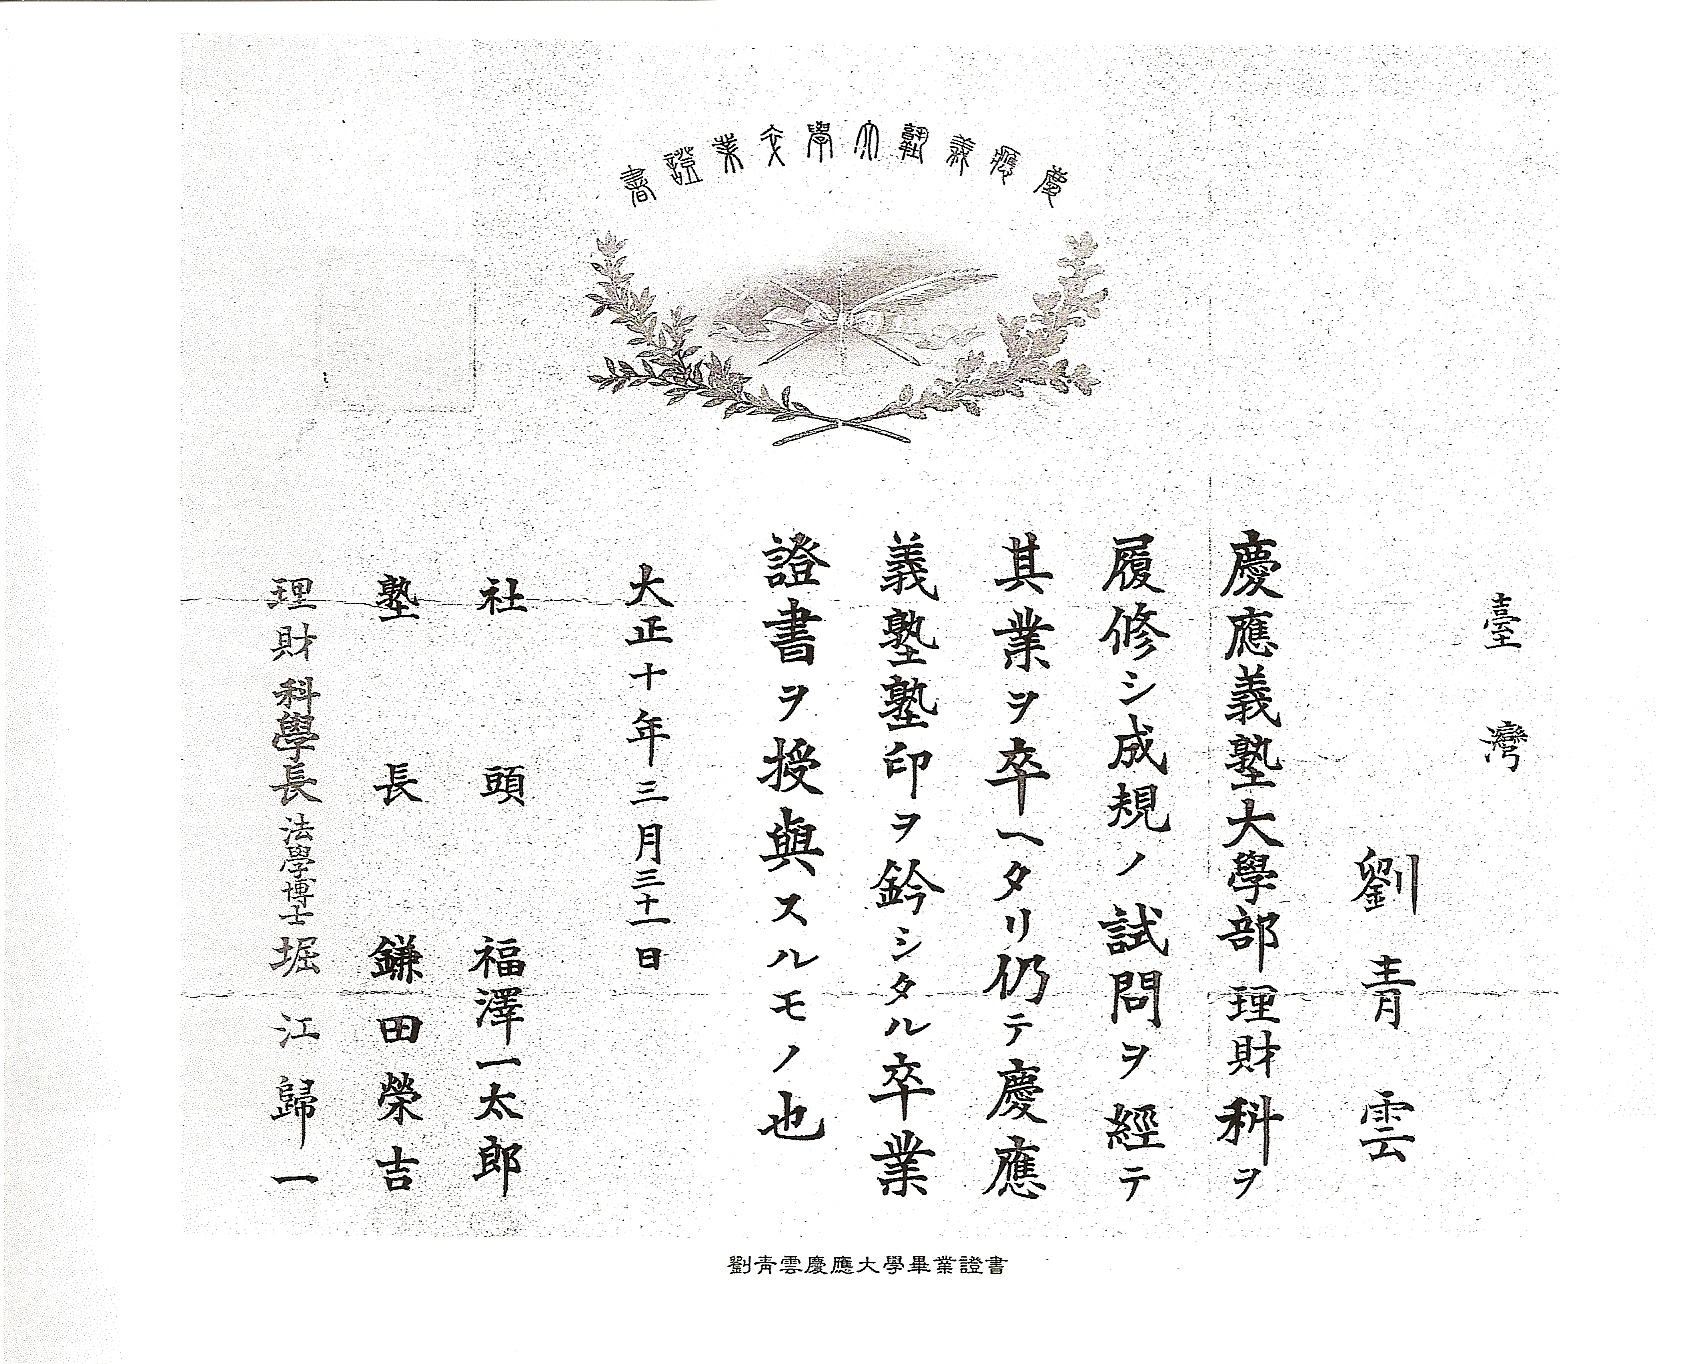 慶應義塾大學卒業證書
臺灣
劉青雲
慶應義塾大學部理財科ヲ
履修シ成規ノ試問ヲ經テ
其業ヲ卒ヘタリ仍テ慶應
義塾塾印ヲ鈐シタル卒業
證書ヲ授與スルモノ也
大正十年三月三十一日
社頭 福澤一太郎
塾長 鎌田榮吉
理財科學長法學博士堀江歸一
劉青雲慶應大學畢業證書